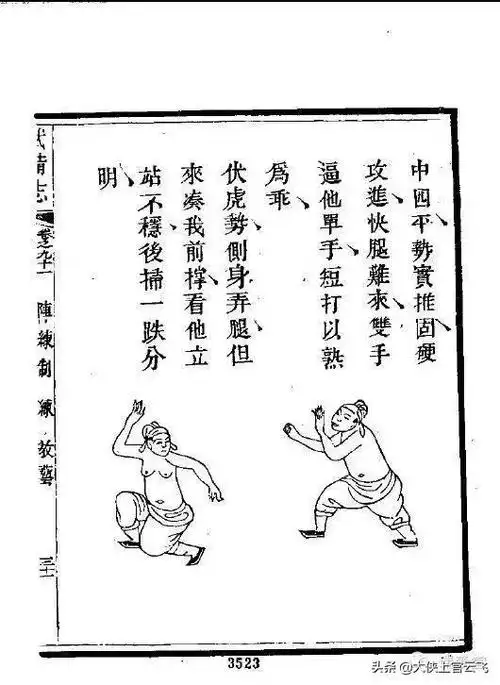 中四平勢實推固硬
攻進快腿難來雙手
逼他單手短打以熟
爲乖
伏虎勢側身弄腿但
來湊我前撐看他立
站不穩後掃一跌分
明
武備志
卷九十一
陣練制
練
教藝
三十
3523
头条 @大侠上官云飞